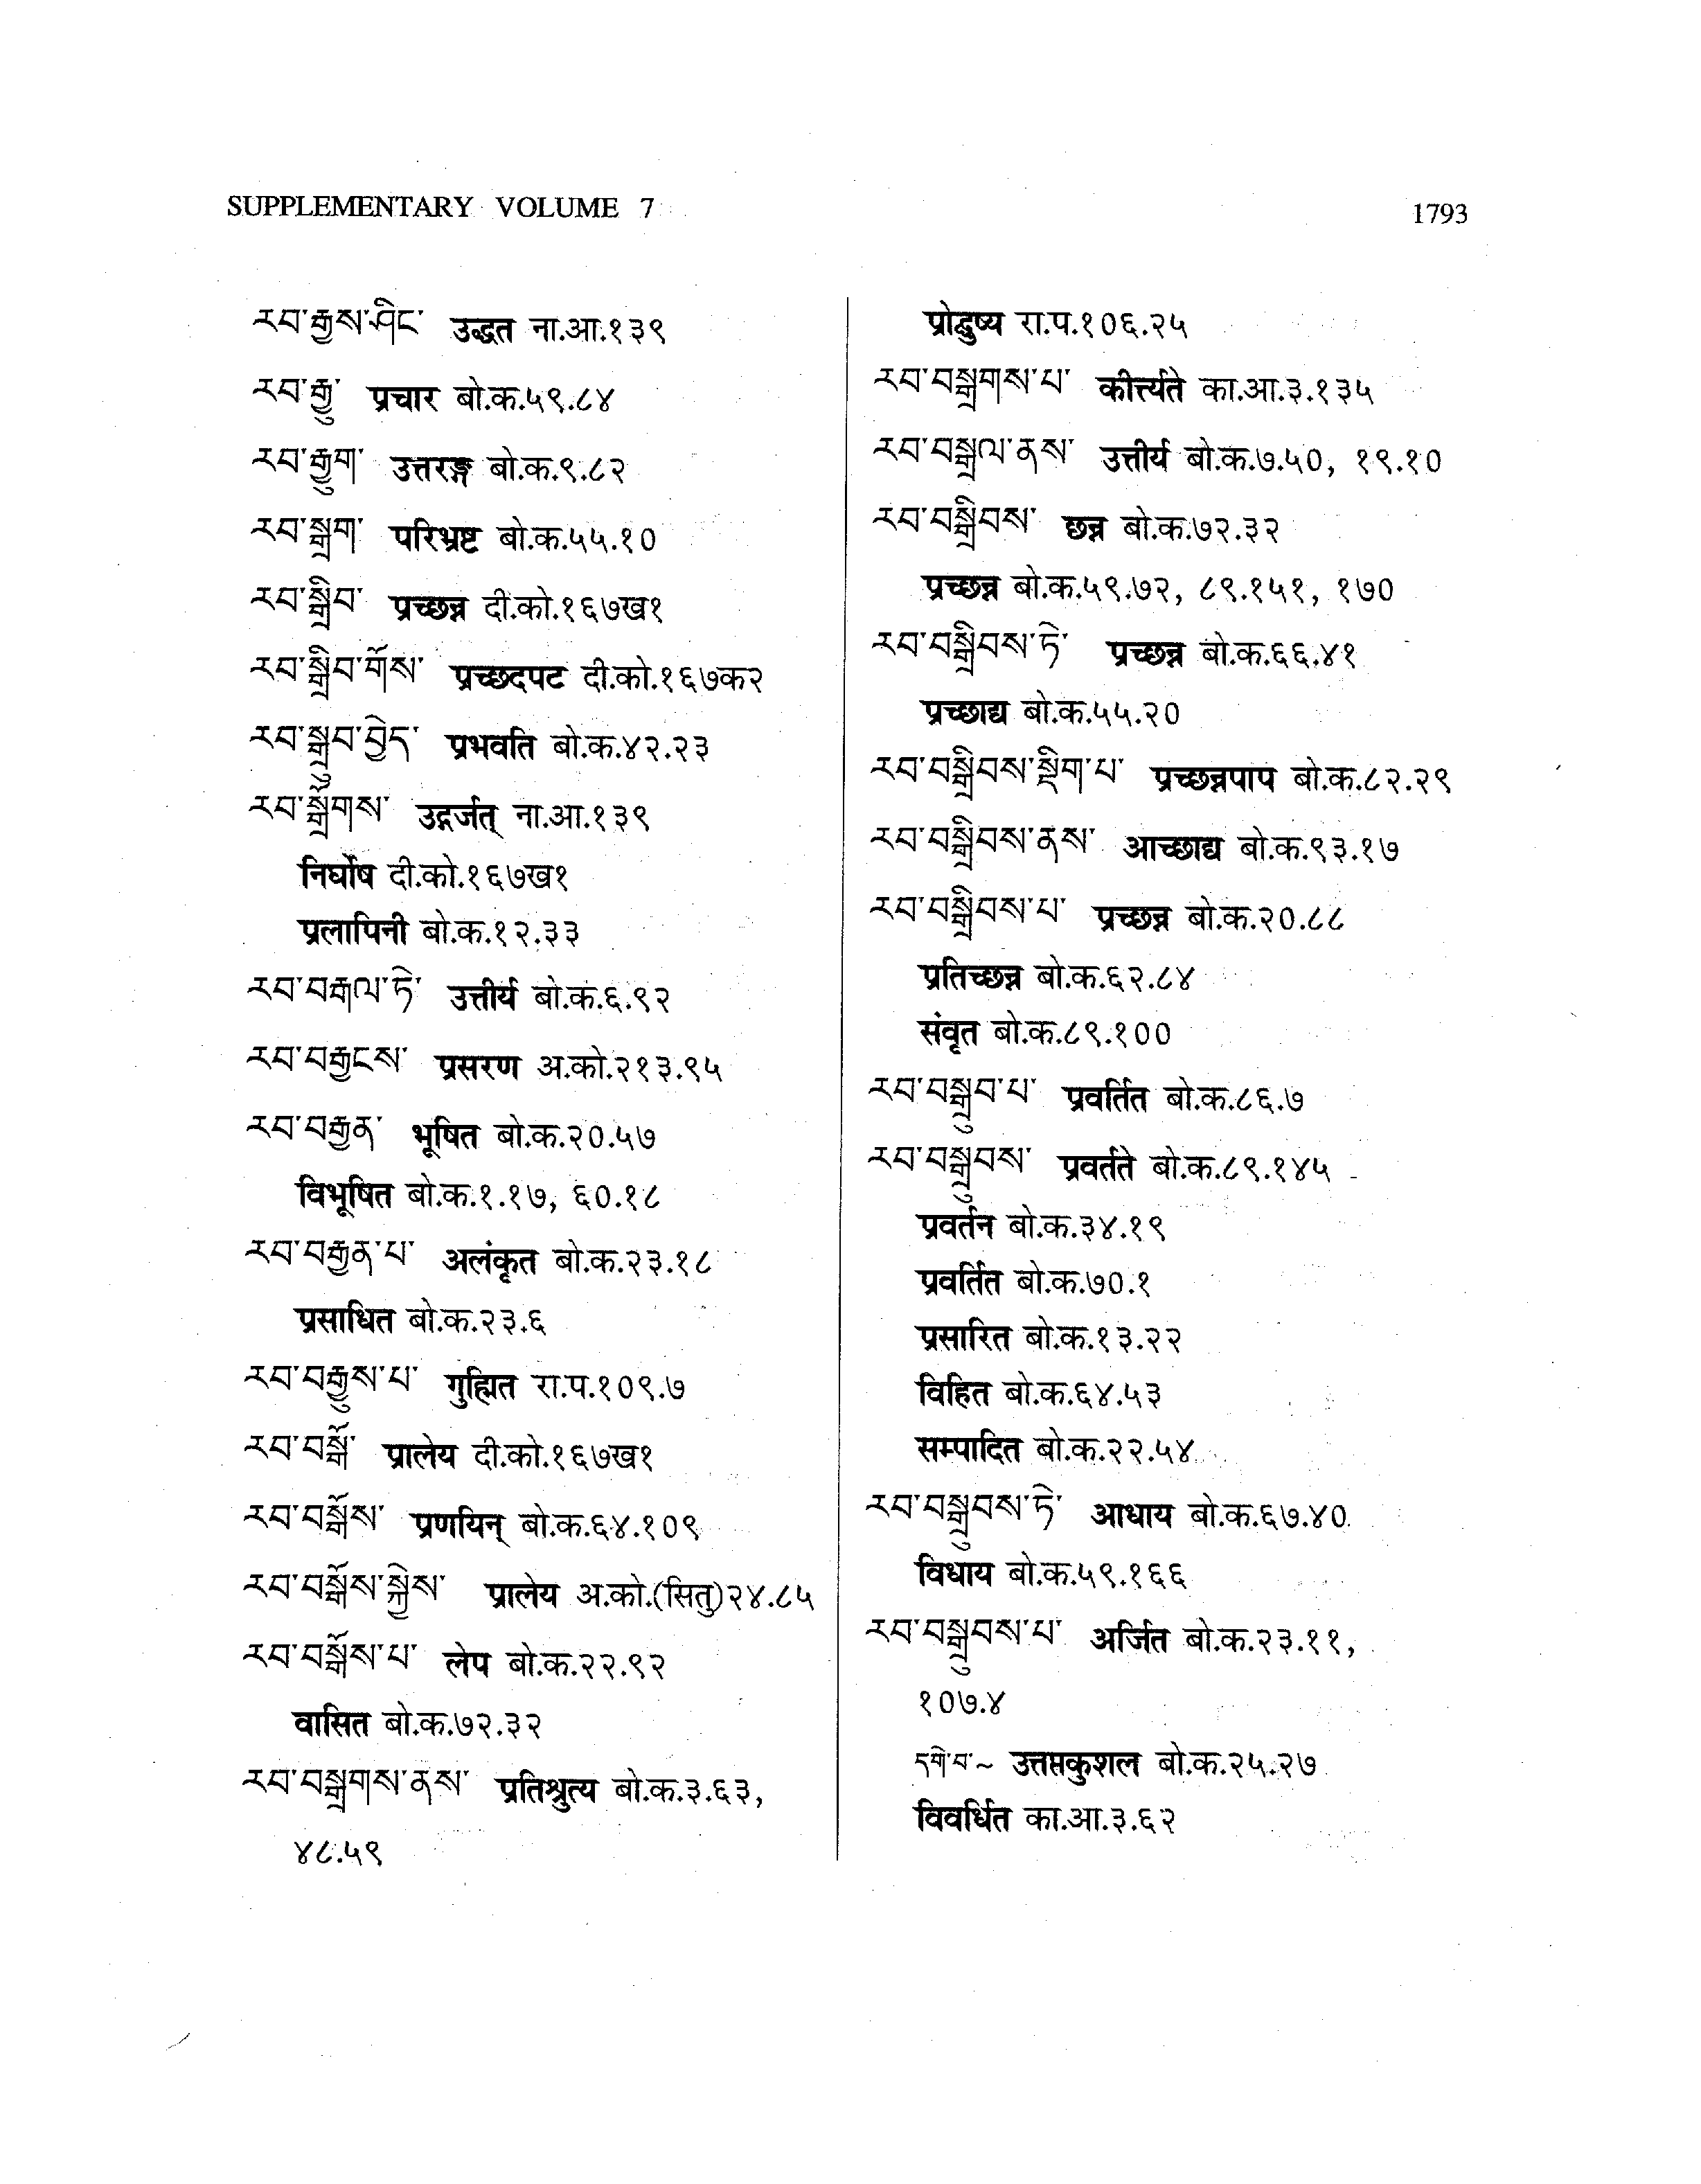 SUPPLEMENTARY VOLUME 7
1793
རབ་རྒྱས་ཤིང་ उद्धत ना.आ.१३९
རབ་རྒྱུ་ प्रचार बो.क.५९.८४
རབ་རྒྱུག་ उत्तरङ्ग बो.क.९.८२
རབ་སྒྲག་ परिभ्रष्ट बो.क.५५.१०
རབ་སྒྲིབ་ प्रच्छन्न दी.को.१६७ख१
རབ་སྒྲིབ་གོས་ प्रच्छदपट दी.को.१६७क२
རབ་སྒྲུབ་བྱེད་ प्रभवति बो.क.४२.२३
རབ་སྒྲོགས་ उद्गर्जत् ना.आ.१३९
निर्घोष दी.को.१६७ख१
प्रलापिनी बो.क.१२.३३
རབ་བརྒལ་ཏེ་ उत्तीर्य बो.क.६.९२
རབ་བརྒྱངས་ प्रसरण अ.को.२१३.९५
རབ་བརྒྱན་ भूषित बो.क.२०.५७
विभूषित बो.क.१.१७, ६०.१८
རབ་བརྒྱན་པ་ अलंकृत बो.क.२३.१८
प्रसाधित बो.क.२३.६
རབ་བརྒྱུས་པ་ गुह्मित रा.प.१०९.७
རབ་བསྒོ་ प्रालेय दी.को.१६७ख१
རབ་བསྒོས་ प्रणयिन् बो.क.६४.१०९
རབ་བསྒོས་སྐྱེས་ प्रालेय अ.को.(सितु)२४.८५
རབ་བསྒོས་པ་ लेप बो.क.२२.९२
वासित बो.क.७२.३२
རབ་བསྒྲགས་ནས་ प्रतिश्रुत्य बो.क.३.६३,
४८.५९
प्रोद्घुष्य रा.प.१०६.२५
རབ་བསྒྲགས་པ་ कीर्त्त्यते का.आ.३.१३५
རབ་བསྒྲལ་ནས་ उत्तीर्य बो.क.७.५०, १९.१०
རབ་བསྒྲིབས་ छन्न बो.क.७२.३२
प्रच्छन्न बो.क.५९.७२, ८९.१५१, १७०
རབ་བསྒྲིབས་ཏེ་ प्रच्छन्न बो.क.६६.४१
प्रच्छाद्य बो.क.५५.२०
རབ་བསྒྲིབས་སྡིག་པ་ प्रच्छन्नपाप बो.क.८२.२९
རབ་བསྒྲིབས་ནས་ आच्छाद्य बो.क.९३.१७
རབ་བསྒྲིབས་པ་ प्रच्छन्न बो.क.२०.८८
प्रतिच्छन्न बो.क.६२.८४
संवृत बो.क.८९.१००
རབ་བསྒྲུབ་པ་ प्रवर्तित बो.क.८६.७
རབ་བསྒྲུབས་ प्रवर्तते बो.क.८९.१४५
प्रवर्तन बो.क.३४.१९
प्रवर्तित बो.क.७०.१
प्रसारित बो.क.१३.२२
विहित बो.क.६४.५३
सम्पादित बो.क.२२.५४
རབ་བསྒྲུབས་ཏེ་ आधाय बो.क.६७.४०
विधाय बो.क.५९.१६६
རབ་བསྒྲུབས་པ་ अर्जित बो.क.२३.११,
१०७.४
དགེ་བ་~ उत्तप्तकुशल बो.क.२५.२७
विवर्धित का.आ.३.६२